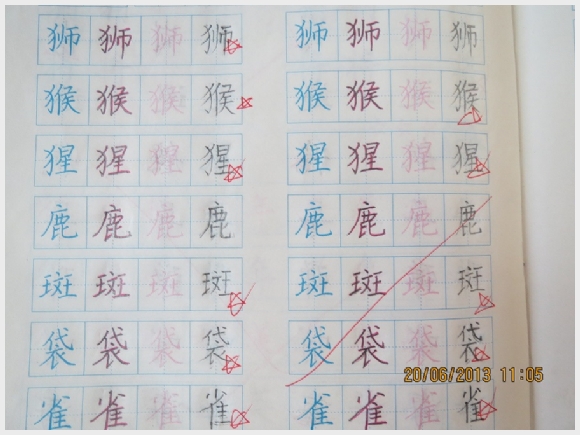 狮狮狮狮 狮狮狮狮
猴猴猴猴 猴猴猴猴
猩猩猩猩 猩猩猩猩
鹿鹿鹿鹿 鹿鹿鹿鹿
斑斑斑斑 斑斑斑斑
袋袋袋袋 袋袋袋袋
20/06/2013 11:05
雀雀雀雀 雀雀雀雀